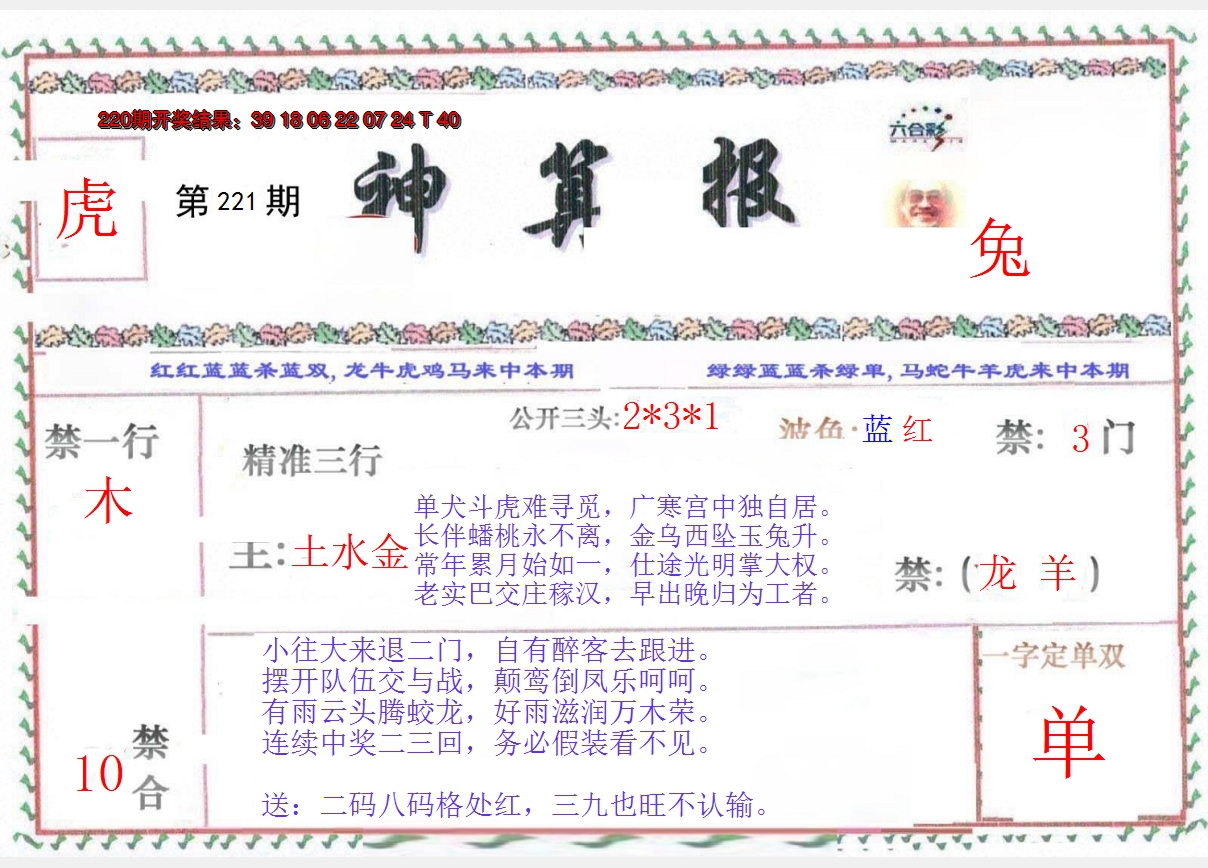 220期开奖结果：39 18 06 22 07 24 T 40
六合彩
虎
第 221 期
神算报
兔
红红蓝蓝杀蓝双,龙牛虎鸡马来中本期
绿绿蓝蓝杀绿单,马蛇牛羊虎来中本期
禁一行
木
精准三行
公开三头:2*3*1
波色:蓝 红
禁: 3 门
主:土水金
单犬斗虎难寻觅，广寒宫中独自居。
长伴蟠桃永不离，金乌西坠玉兔升。
常年累月始如一，仕途光明掌大权。
老实巴交庄稼汉，早出晚归为工者。
禁:(龙 羊)
小往大来退二门，自有醉客去跟进。
摆开队伍交与战，颠鸾倒凤乐呵呵。
有雨云头腾蛟龙，好雨滋润万木荣。
连续中奖二三回，务必假装看不见。
送：二码八码格处红，三九也旺不认输。
10
禁合
一字定单双
单